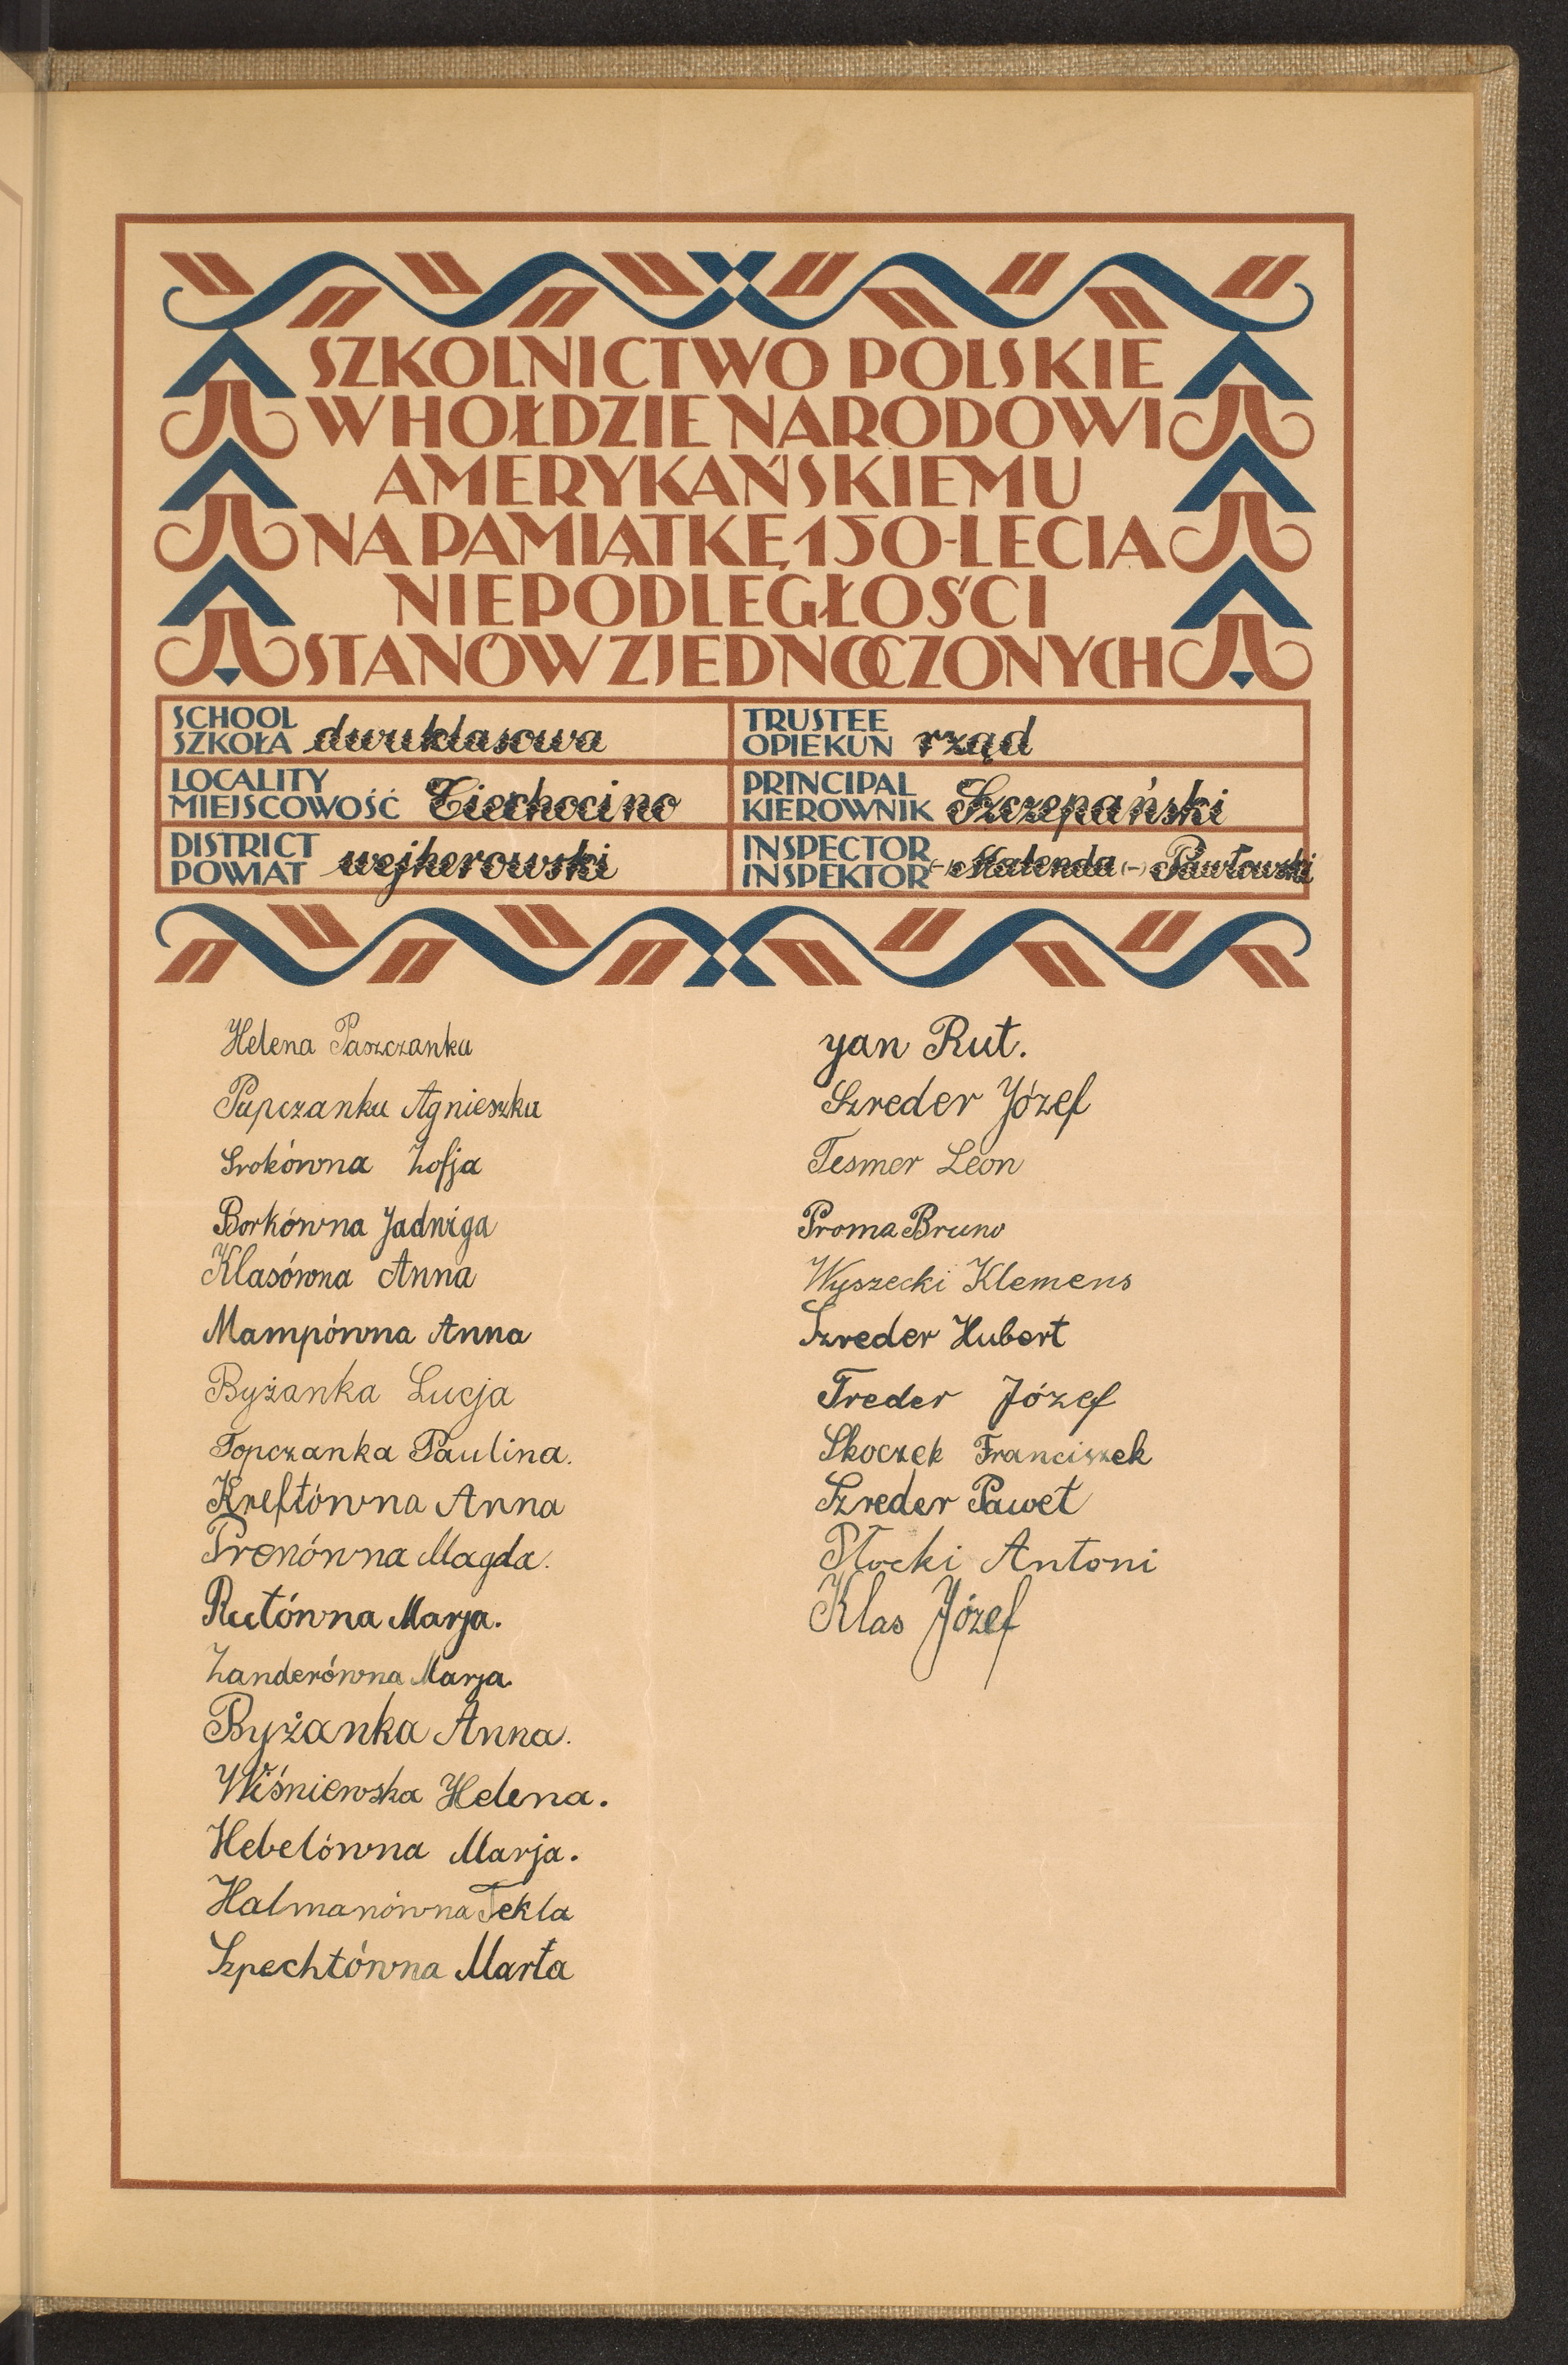 SZKOLNICTWO POLSKIE
W HOŁDZIE NARODOWI
AMERYKAŃSKIEMU
NA PAMIĄTKĘ 150-LECIA
NIEPODLEGŁOŚCI
STANÓW ZJEDNOCZONYCH
SCHOOL
SZKOŁA dwuklasowa
TRUSTEE
OPIEKUN rząd
LOCALITY
MIEJSCOWOŚĆ Ciechocino
PRINCIPAL
KIEROWNIK Szczepański
DISTRICT
POWIAT wejherowski
INSPECTOR
INSPEKTOR (-) Malenda (-) Pawłowski
Helena Paszczanka
Pupczanka Agnieszka
Srokówna Zofja
Borkówna Jadwiga
Klasówna Anna
Mampówna Anna
Byżanka Lucja
Topczanka Paulina.
Kreftówna Anna
Prenówna Magda.
Rutówna Marja.
Zanderówna Marja.
Byżanka Anna.
Wiśniewska Helena.
Hebelówna Marja.
Halmanówna Tekla
Szpechtówna Marta
Jan Rut.
Szreder Józef
Tesmer Leon
Proma Bruno
Wyszecki Klemens
Szreder Hubert
Treder Józef
Skoczek Franciszek
Szreder Paweł
Płocki Antoni
Klas Józef